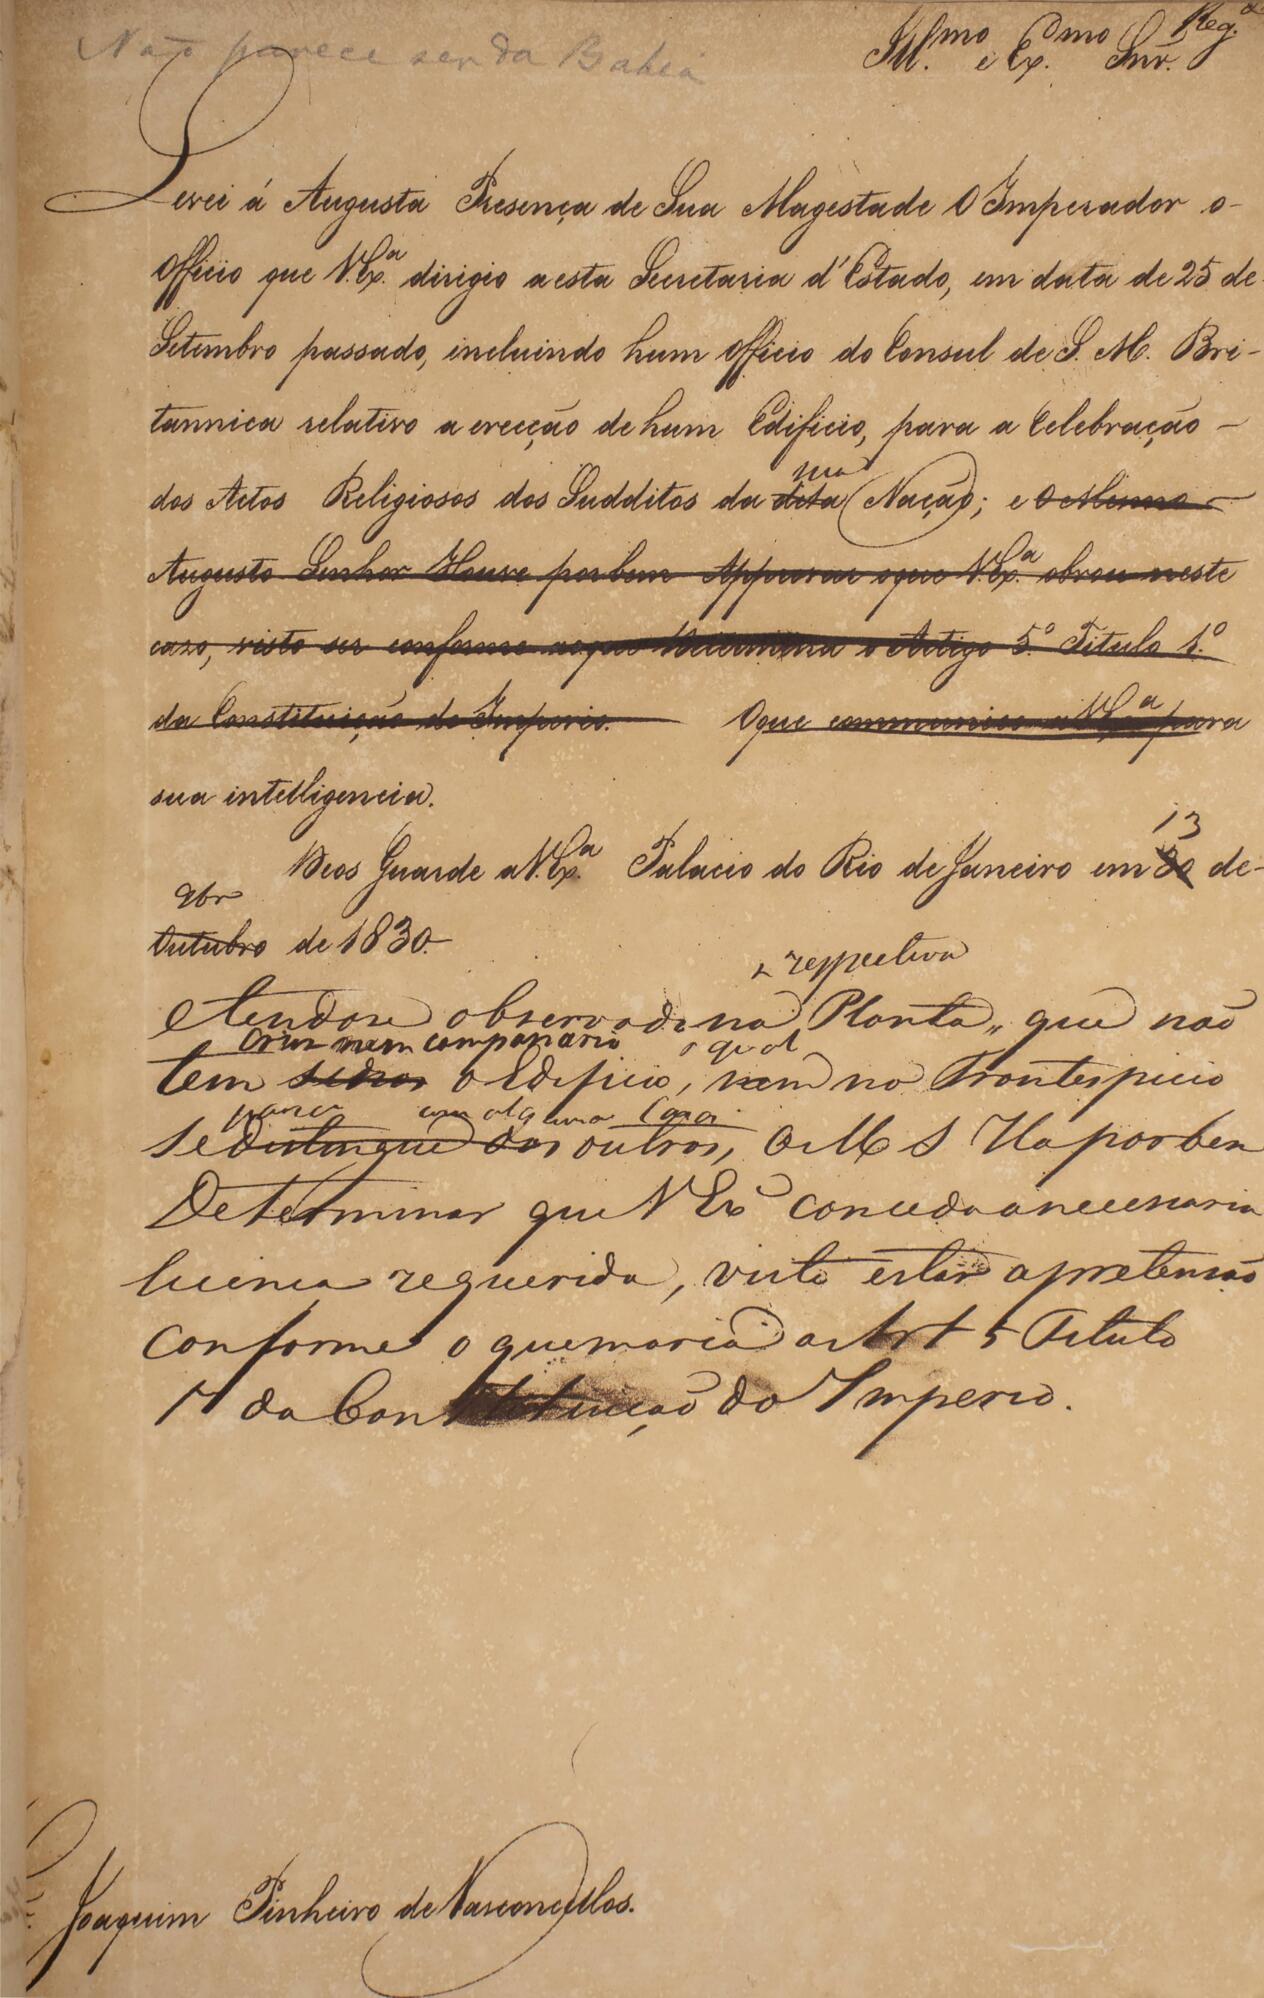 Não parece ser da Bahia
Reg.ª
Ill.mo e Ex.mo Snr.
Levei á Augusta Presença de Sua Magestade O Imperador o
Officio que V. Ex.ª dirigio a esta Secretaria d'Estado, em data de 25 de
Setembro passado, incluindo hum Officio do Consul de S. M. Bri-
tannica relativo a erecção de hum Edificio, para a Celebração
dos Actos Religiosos dos Subditos da dita Nação; e O Mesmo
Augusto Senhor Houve por bem Approvar o que V. Ex.ª obrou neste
cazo, visto ser conforme ao que Determina o Artigo 5.º Titulo 1.º
da Constituição do Imperio. O que communico a V. Ex.ª para
sua intelligencia.
Deos Guarde a V. Ex.ª Palacio do Rio de Janeiro em 30 de
13
9br
Outubro de 1830.
respectiva
e tendose observado na Planta, que não
Cruz nem companario o qual
tem o Edificio, nem no Frontespicio
parece em alguma Caza
se distingue das outras, O M S Ha por bem
Determinar que V Exª conceda a necessaria
licença requerida, visto estar a pretensão
conforme o que marca o Art 5 Titulo
1º da Constituição do Imperio.
Joaquim Pinheiro de Vasconcellos.